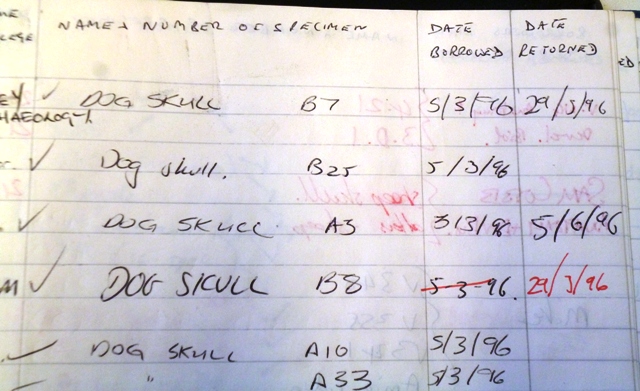 NAME + NUMBER OF SPECIMEN DATE BORROWED DATE RETURNED
DOG SKULL B7 5/3/96 29/3/96
Dog skull. B25 5/3/96
DOG SKULL A3 5/3/96 5/6/96
DOG SKULL B8 5-3-96. 29/3/96
DOG SKULL A10 5/3/96
" A33 5/3/96